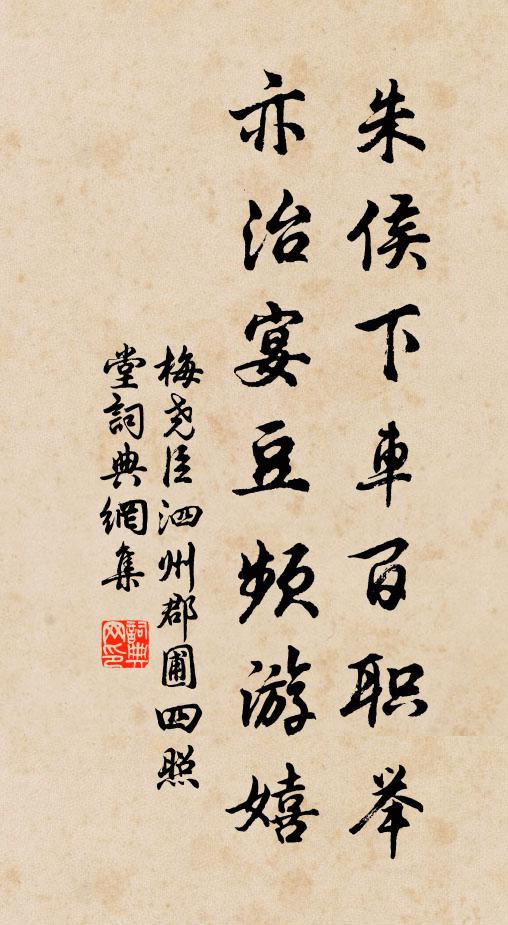 朱侯下車百职举
亦治宴豆频游嬉
梅尧臣泗州郡圃四照
堂詞典網集
詞典网印